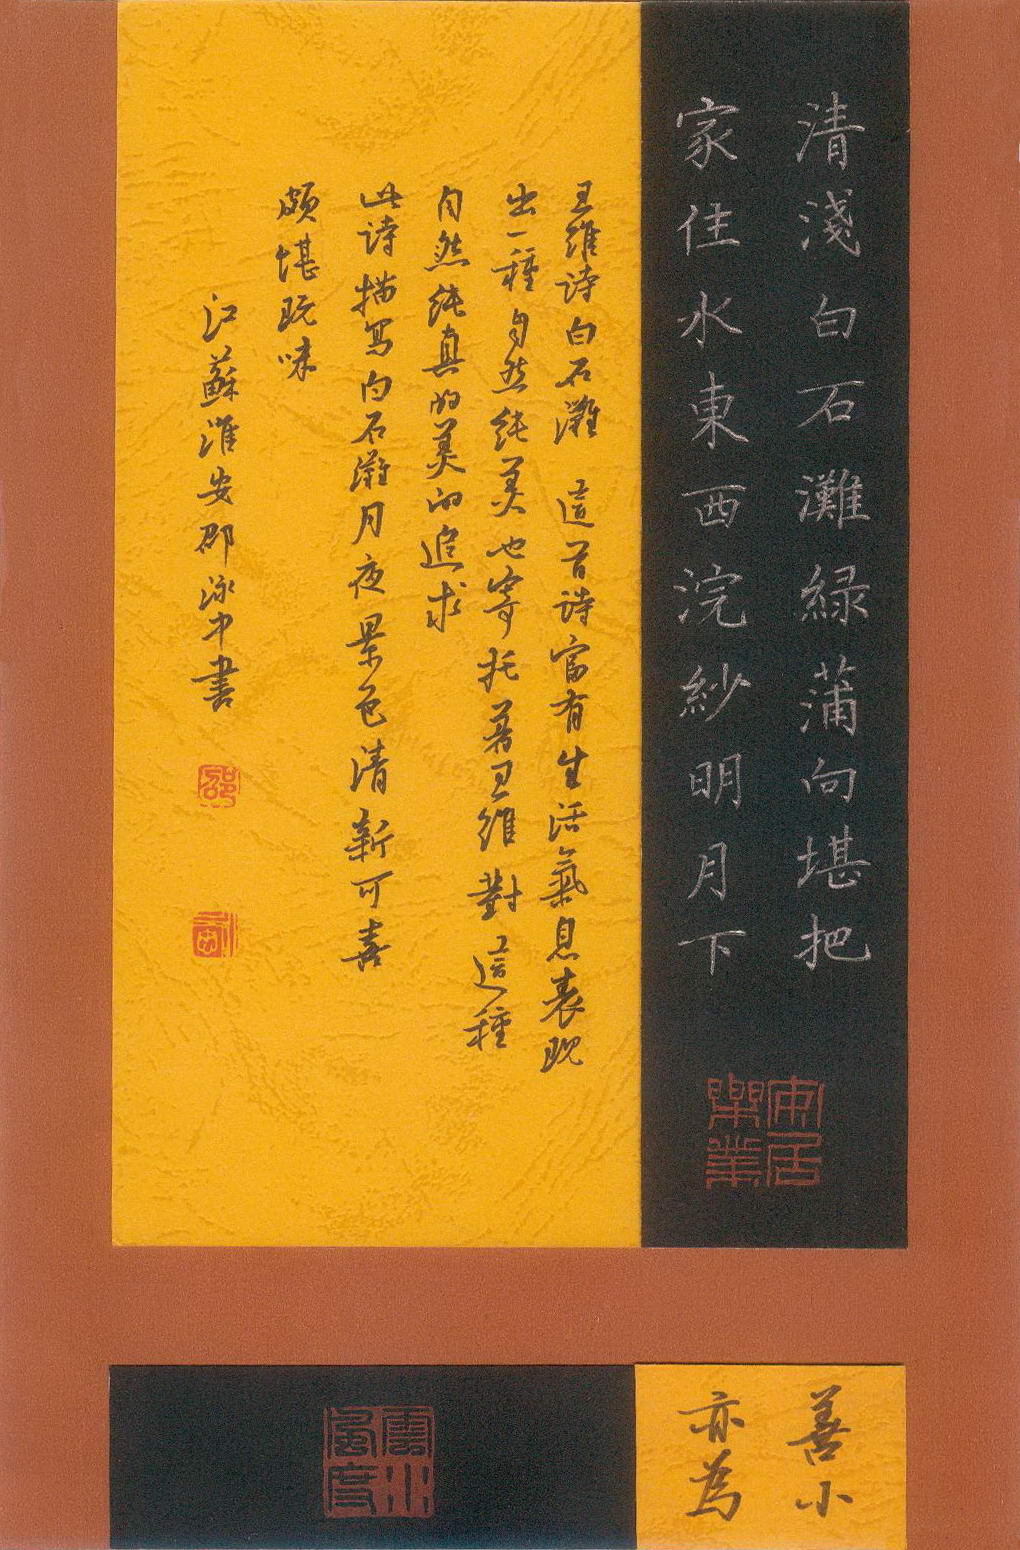 清淺白石灘綠蒲向堪把
家住水東西浣紗明月下
安居
樂業
王維诗白石灘 這首诗富有生活氣息表現
出一種自然纯美也寄托着王維對這種
自然纯真的美的追求
此诗描写白石灘月夜景色清新可喜
颇堪玩味
江蘇淮安邵泳中書
邵
善小
亦為
雲水
風度